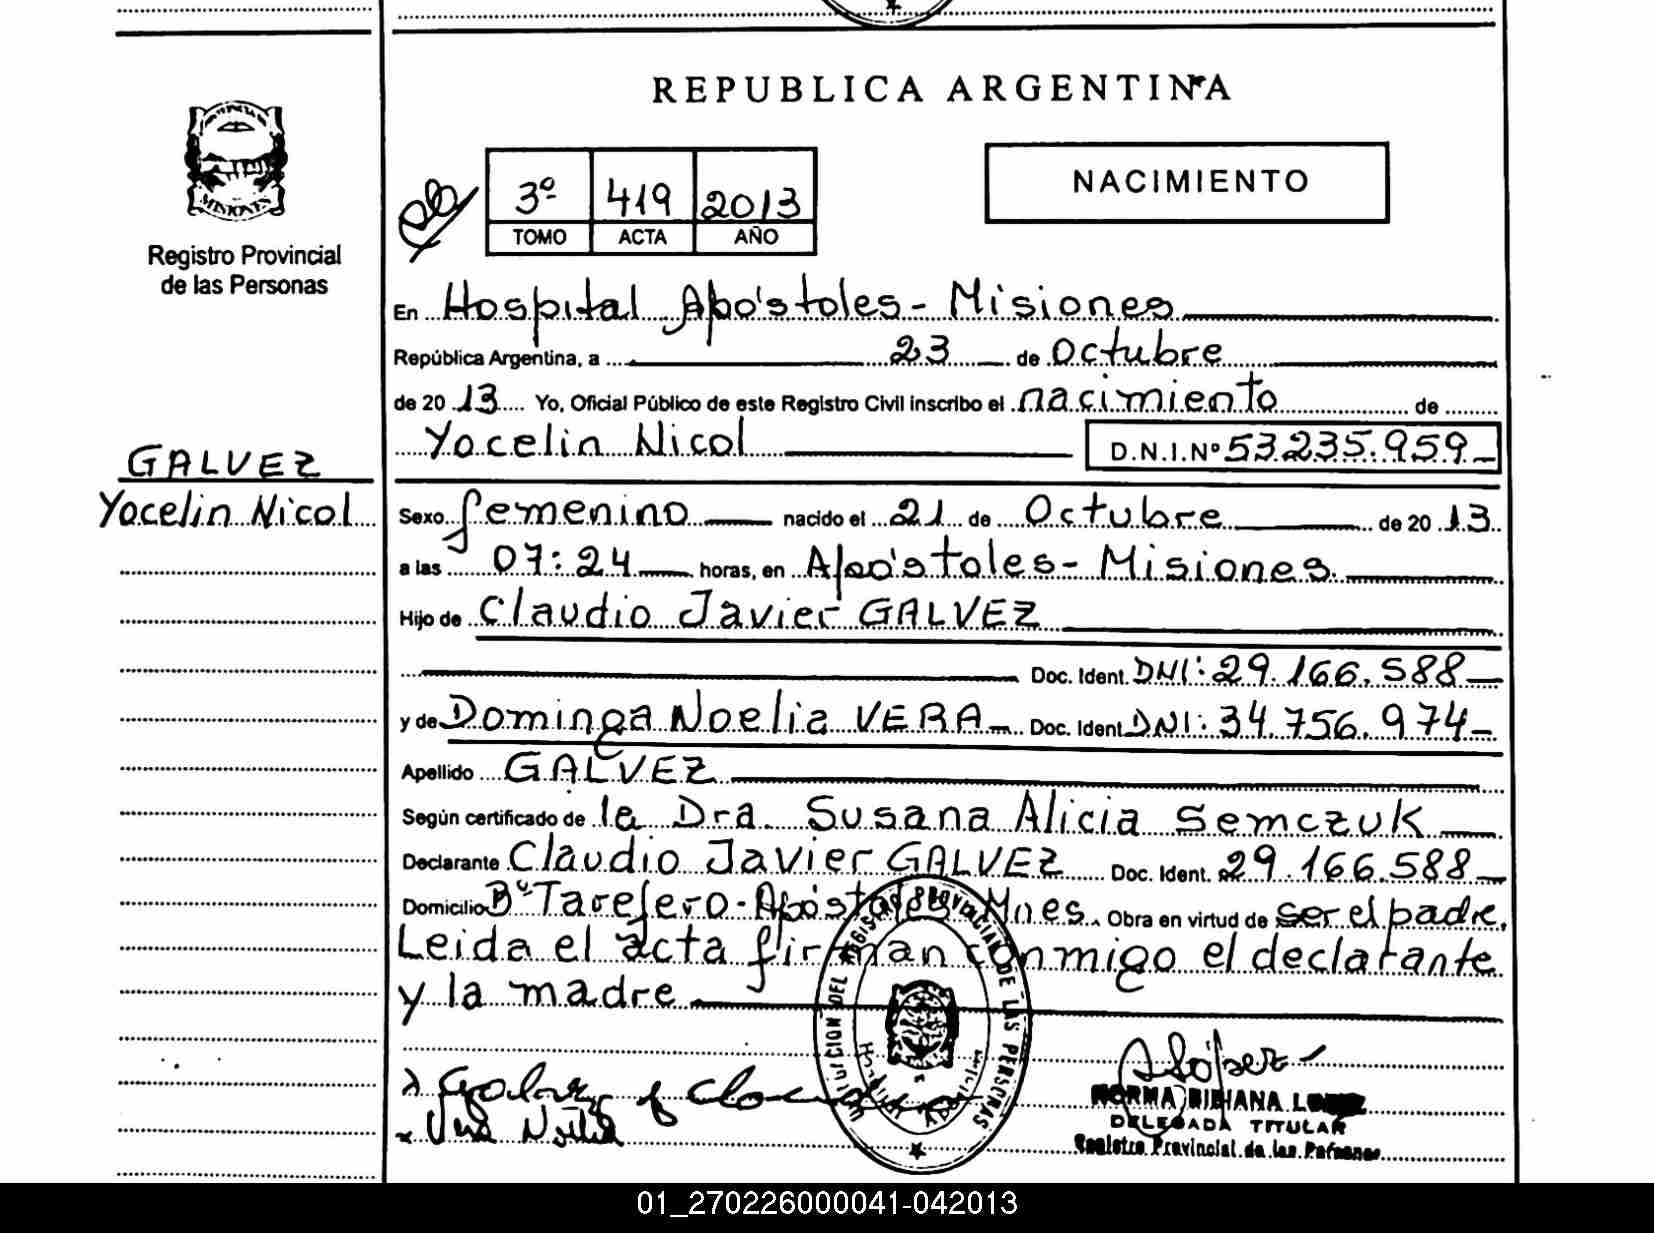 REPUBLICA ARGENTINA
MISIONES
Registro Provincial
de las Personas
3º 419 2013
TOMO ACTA AÑO
NACIMIENTO
En Hospital Apóstoles - Misiones
República Argentina, a 23 de Octubre
de 20 13 Yo, Oficial Público de este Registro Civil inscribo el nacimiento de
Yocelin Nicol D.N.I.Nº 53.235.959
GALVEZ
Yocelin Nicol
Sexo femenino nacido el 21 de Octubre de 20 13
a las 07:24 horas, en Apóstoles - Misiones
Hijo de Claudio Javier GALVEZ
Doc. Ident. DNI: 29.166.588
y de Dominga Noelia VERA Doc. Ident. DNI: 34.756.974
Apellido GALVEZ
Según certificado de la Dra. Susana Alicia Semczuk
Declarante Claudio Javier GALVEZ Doc. Ident. 29.166.588
Domicilio Bº Tarefero - Apóstoles Mnes. Obra en virtud de ser el padre.
Leida el acta firman conmigo el declarante
y la madre
REGISTRO PROVINCIAL DE LAS PERSONAS
NORMA BIBIANA LOPEZ
DELEGADA TITULAR
Registro Provincial de las Personas
01_270226000041-042013